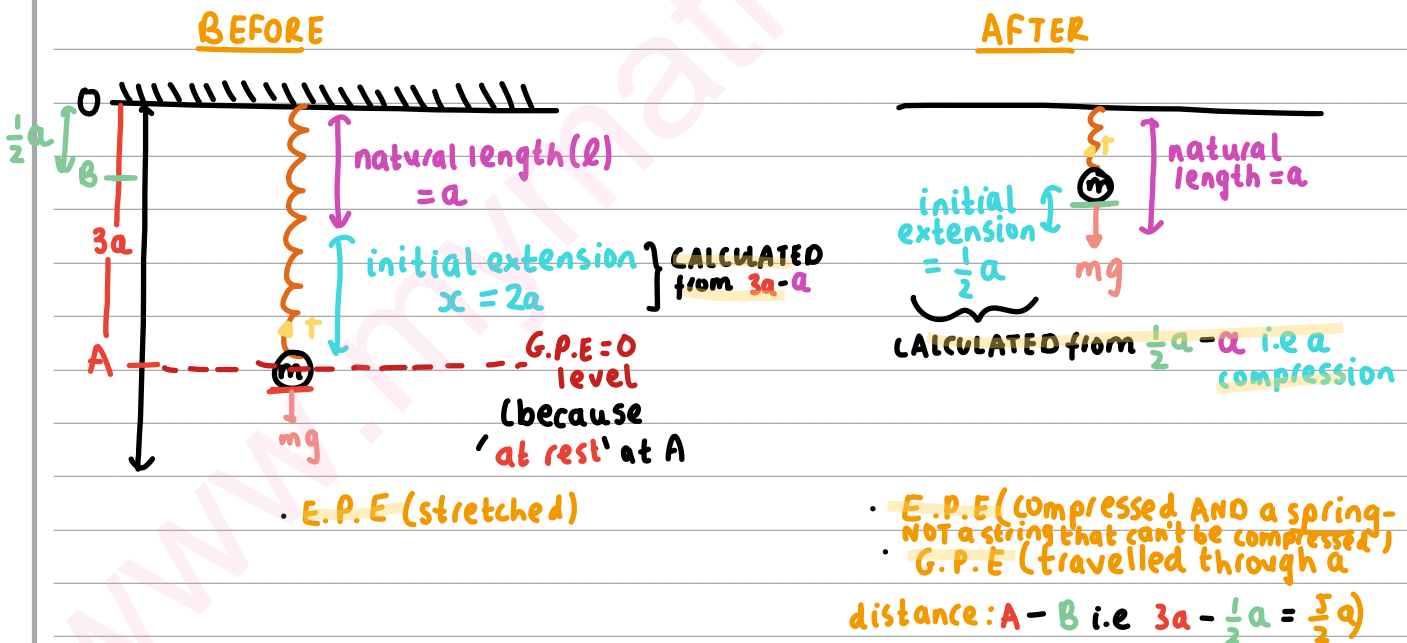 BEFORE
O
½a
B
3a
A
natural length (l)
= a
initial extension
x = 2a
CALCULATED
from 3a-a
T
m
mg
G.P.E = 0
level
(because
'at rest' at A
. E.P.E (stretched)
AFTER
T
m
mg
natural
length = a
initial
extension
= ½a
CALCULATED from ½a - a i.e a
compression
. E.P.E (compressed AND a spring-
NOT a string that can't be compressed)
. G.P.E (travelled through a
distance: A - B i.e 3a - ½a = 5/2 a)
www.mymath